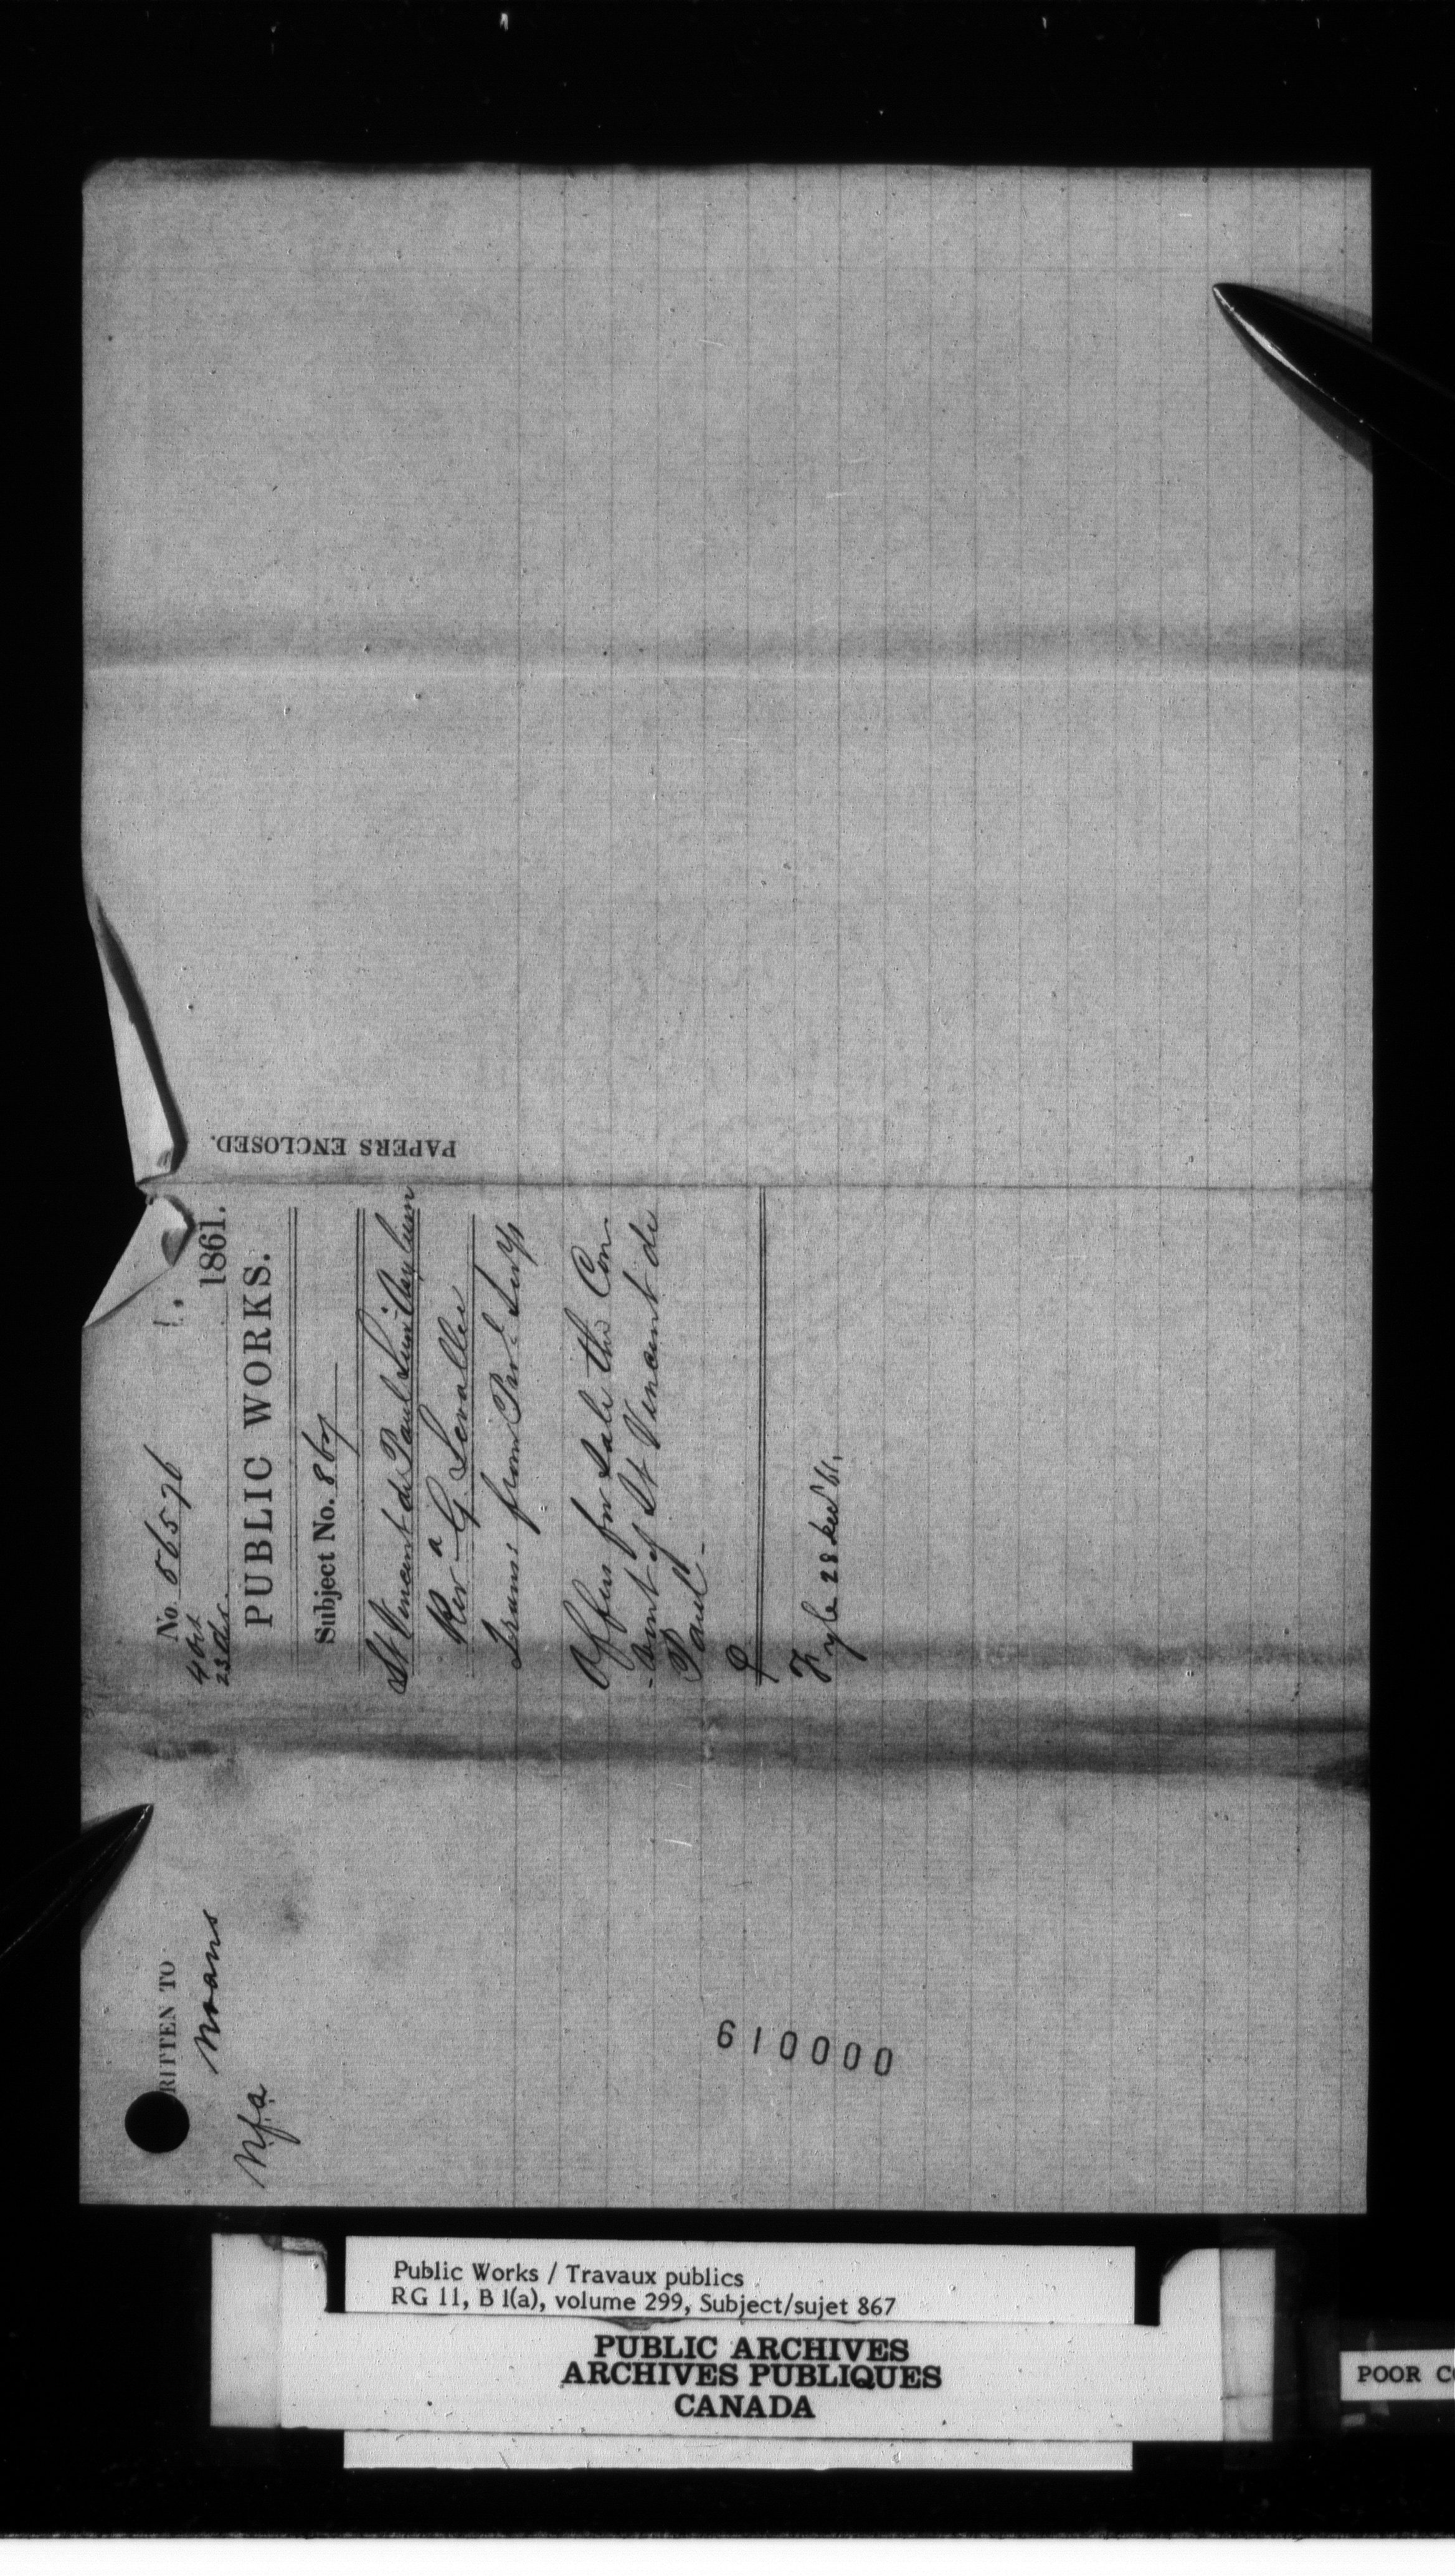 No. 56576
4 Oct
23 do.
1861.
PUBLIC WORKS.
Subject No. 867
St Vincent de Paul Asylum
Revd G. Levallée
Trans: from Provl Secy
Offers for Sale the Con-
-vent of St Vincent de
Paul -
Fyle 28 Decr '61.
PAPERS ENCLOSED.
RITTEN TO
Nfa
000019
Public Works / Travaux publics
RG 11, B 1(a), volume 299, Subject/sujet 867
PUBLIC ARCHIVES
ARCHIVES PUBLIQUES
CANADA
POOR CO